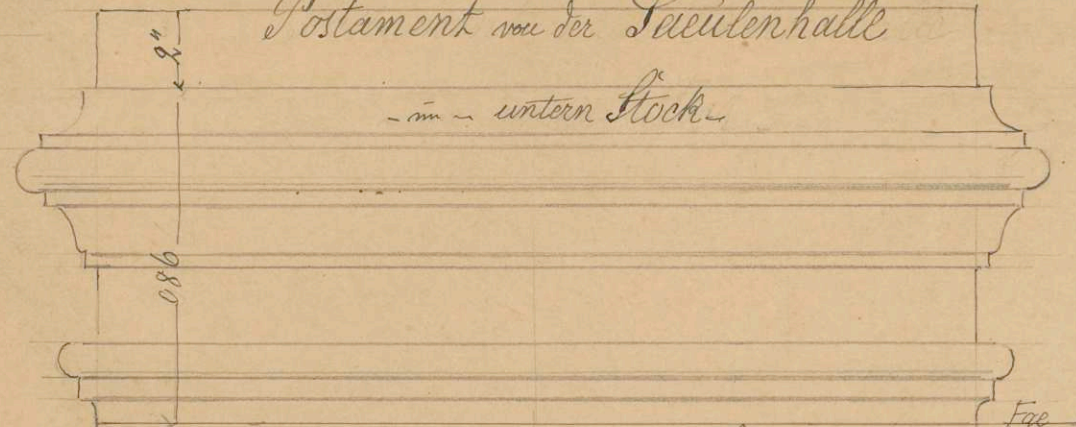 Postament von der Saeulenhalle
- im - untern Stock -
2"
980
Fae